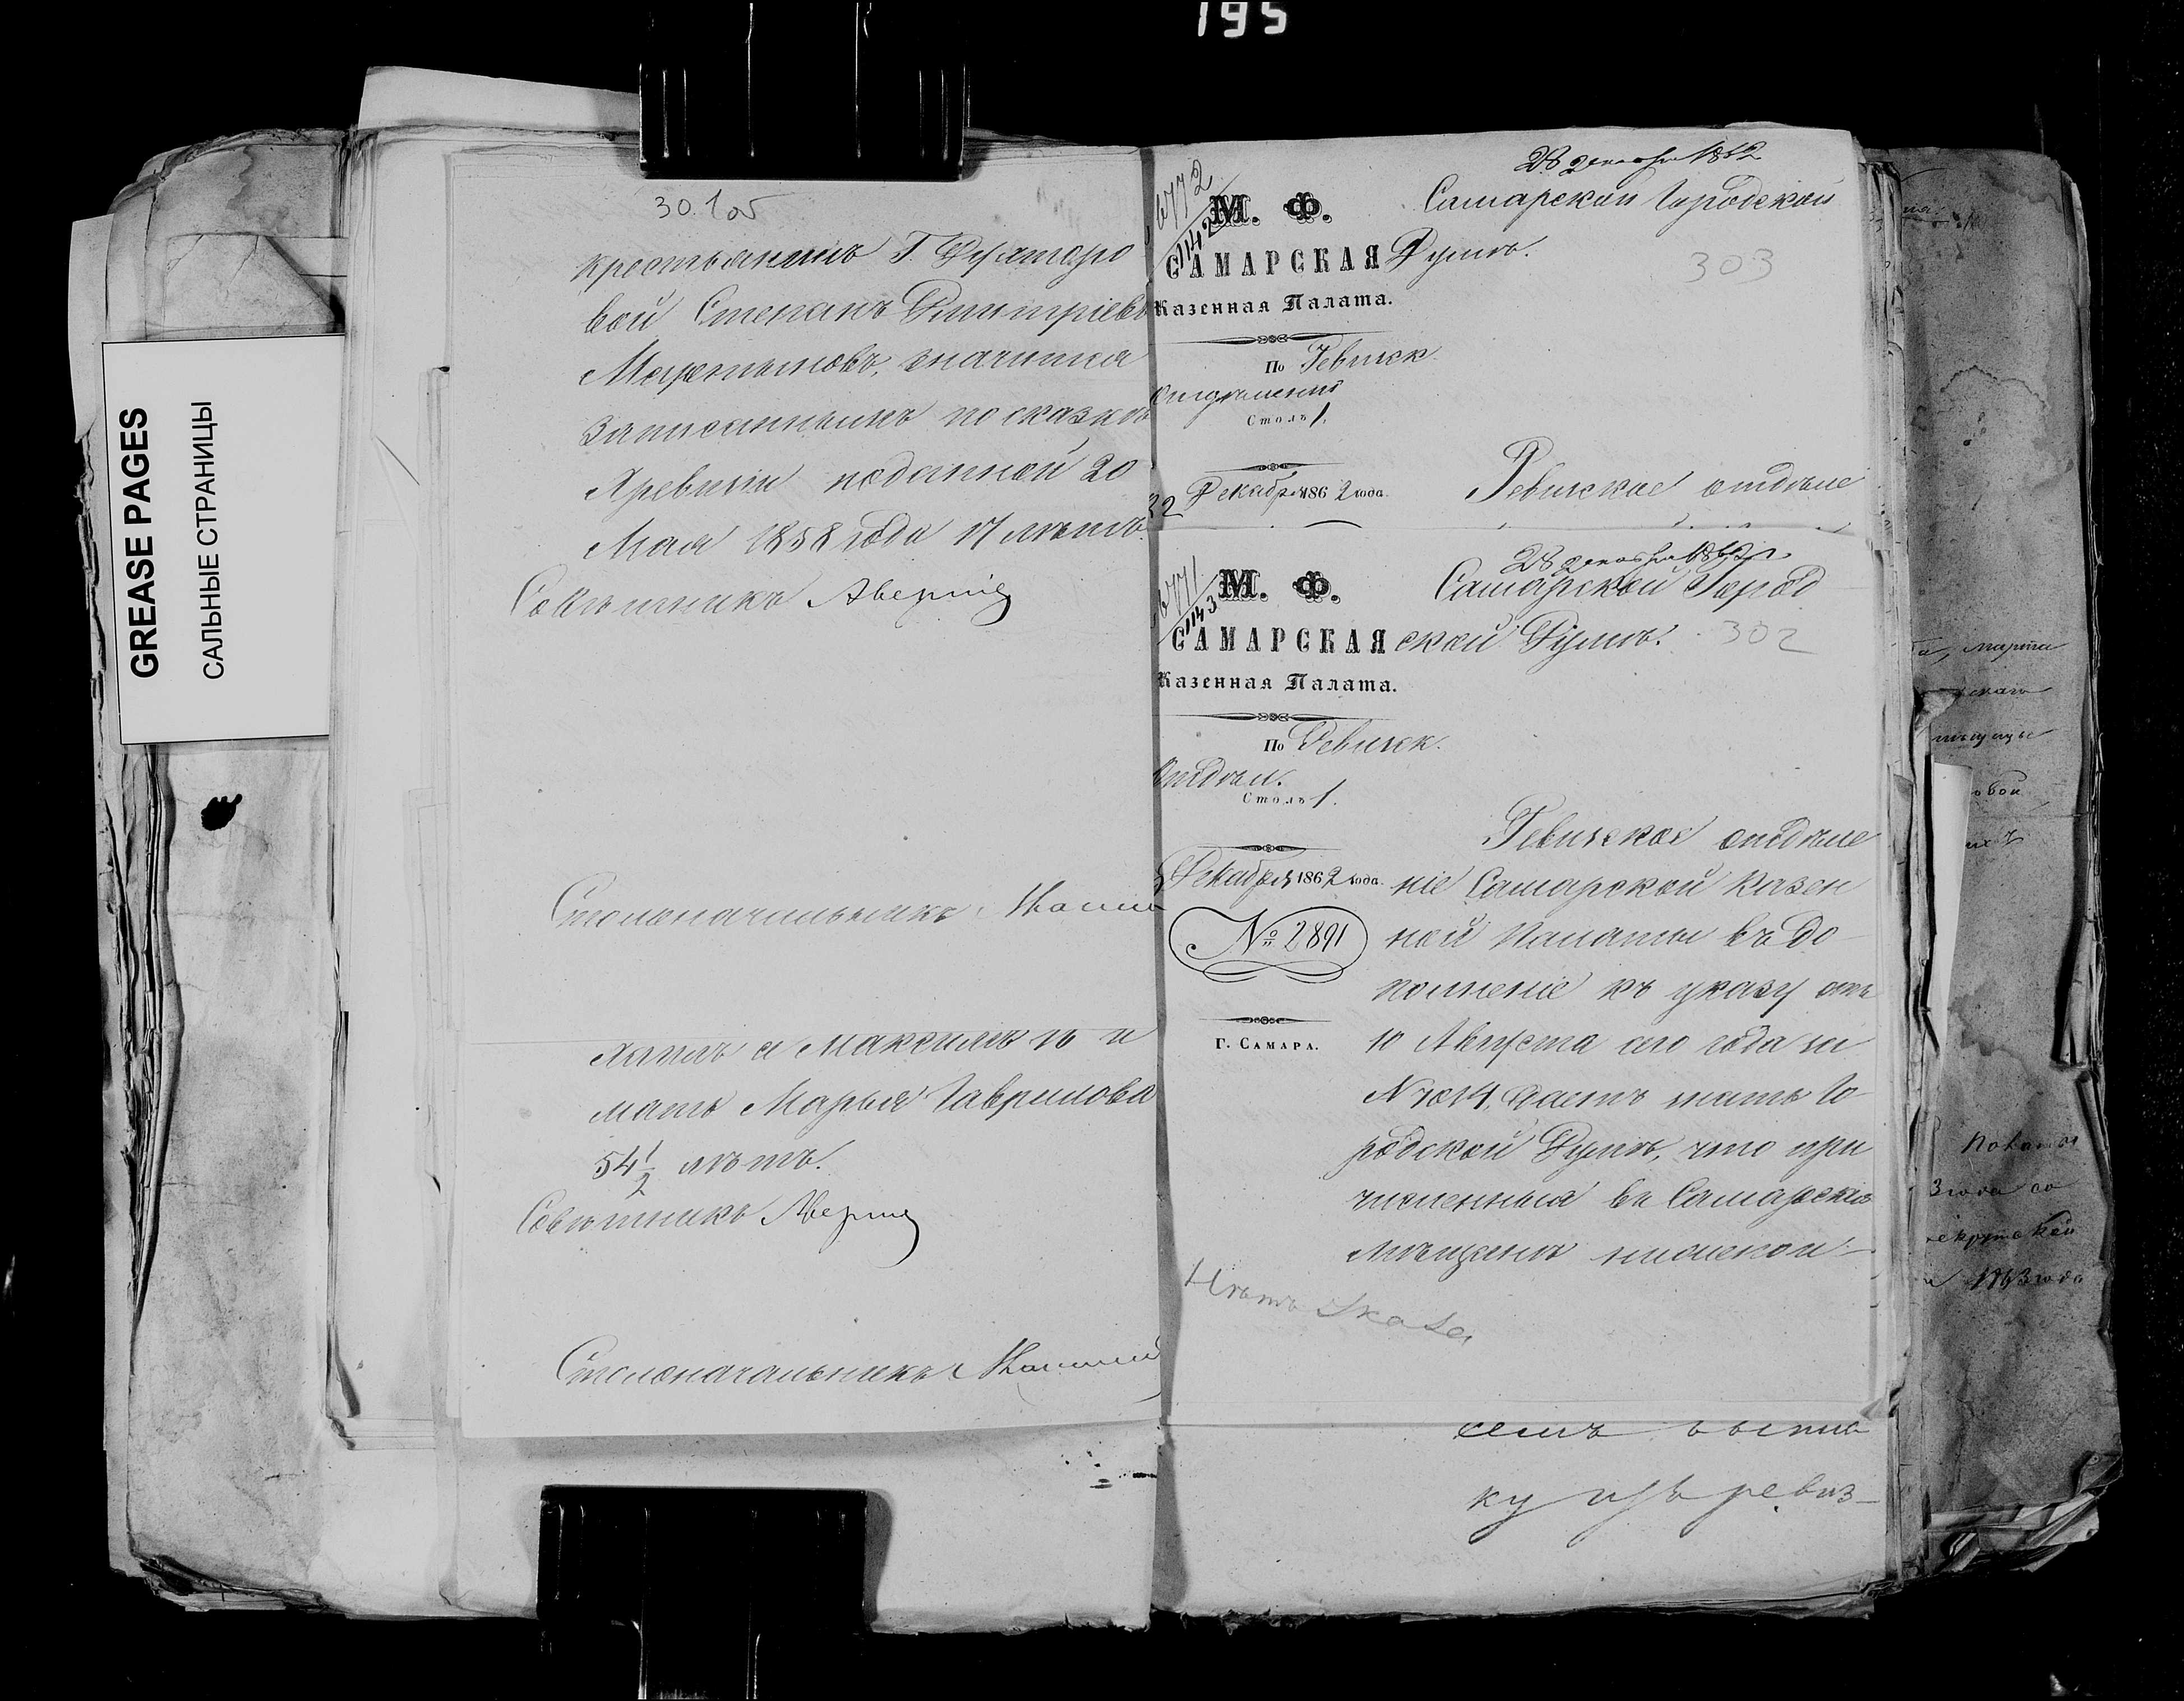 195
GREASE PAGES
САЛЬНЫЕ СТРАНИЦЫ
30. 1 об
крестьянинъ Г.
вой Степанъ Дмитріевъ
Мартыновъ, значится
записаннымъ по сказкѣ
X ревизіи поданной 20
Мая 1858 года 17 лѣтъ.
Совѣтникъ
Столоначальникъ
лѣтъ и Максимъ 16 и
мать Марья Гаврилова
54 1/2 лѣтъ.
Совѣтникъ
Столоначальникъ
6772
1142
М. Ф.
САМАРСКАЯ
Казенная Палата.
По Ревизск.
Отдѣленію
Столъ 1.
22 Декабря 1862 года.
28 декабря 1862
Самарской Городской
Думѣ.
303
Ревизское отдѣле
6771
1143
М. Ф.
САМАРСКАЯ
Казенная Палата.
По Ревизск.
Отдѣл.
Столъ 1.
Декабря 1862 года.
№ 2891
Г. САМАРА.
28 декабря 1862 г.
Самарской Город
ской Думѣ.
302
Ревизское отдѣле
ніе Самарской Казен
ной Палаты въ до
полненіе къ указу отъ
10 Августа сего года за
N 7014, даетъ знать Го
родской Думѣ, что при
численныя въ Самарскіе
Мѣщане
Нѣтъ Указа
семъ выпис
ку изъ ревиз-
марта
скаго
3 года
1863 года